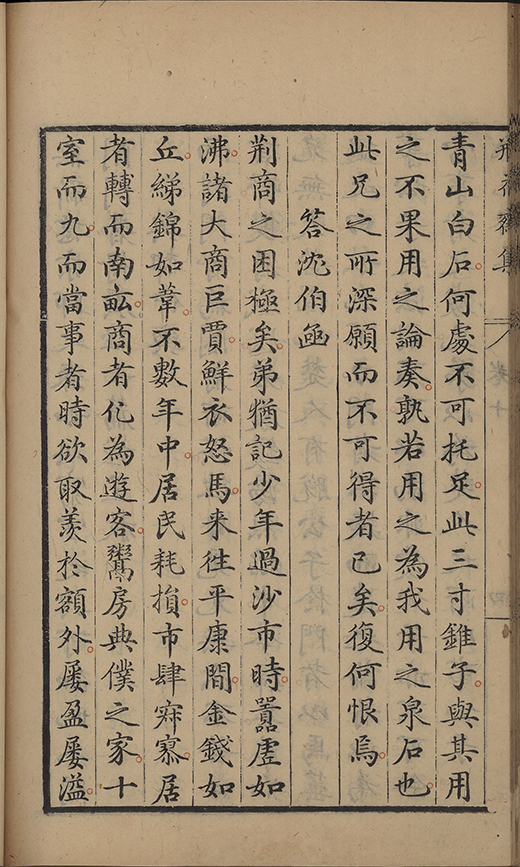 瓶花齋集
卷十
四
青山白石何處不可托足此三寸錐子與其用
之不果用之論奏孰若用之為我用之泉石也
此兄之所深願而不可得者已矣復何恨焉
答沈伯凾
荆商之困極矣弟猶記少年過沙市時嚚虗如
沸諸大商巨賈鮮衣怒馬来徃平康間金錢如
丘綈錦如葦不數年中居民耗損市肆寂寥居
者轉而南畝商者化為遊客鬻房典僕之家十
室而九而當事者時欲取羡扵額外屢盈屢溢